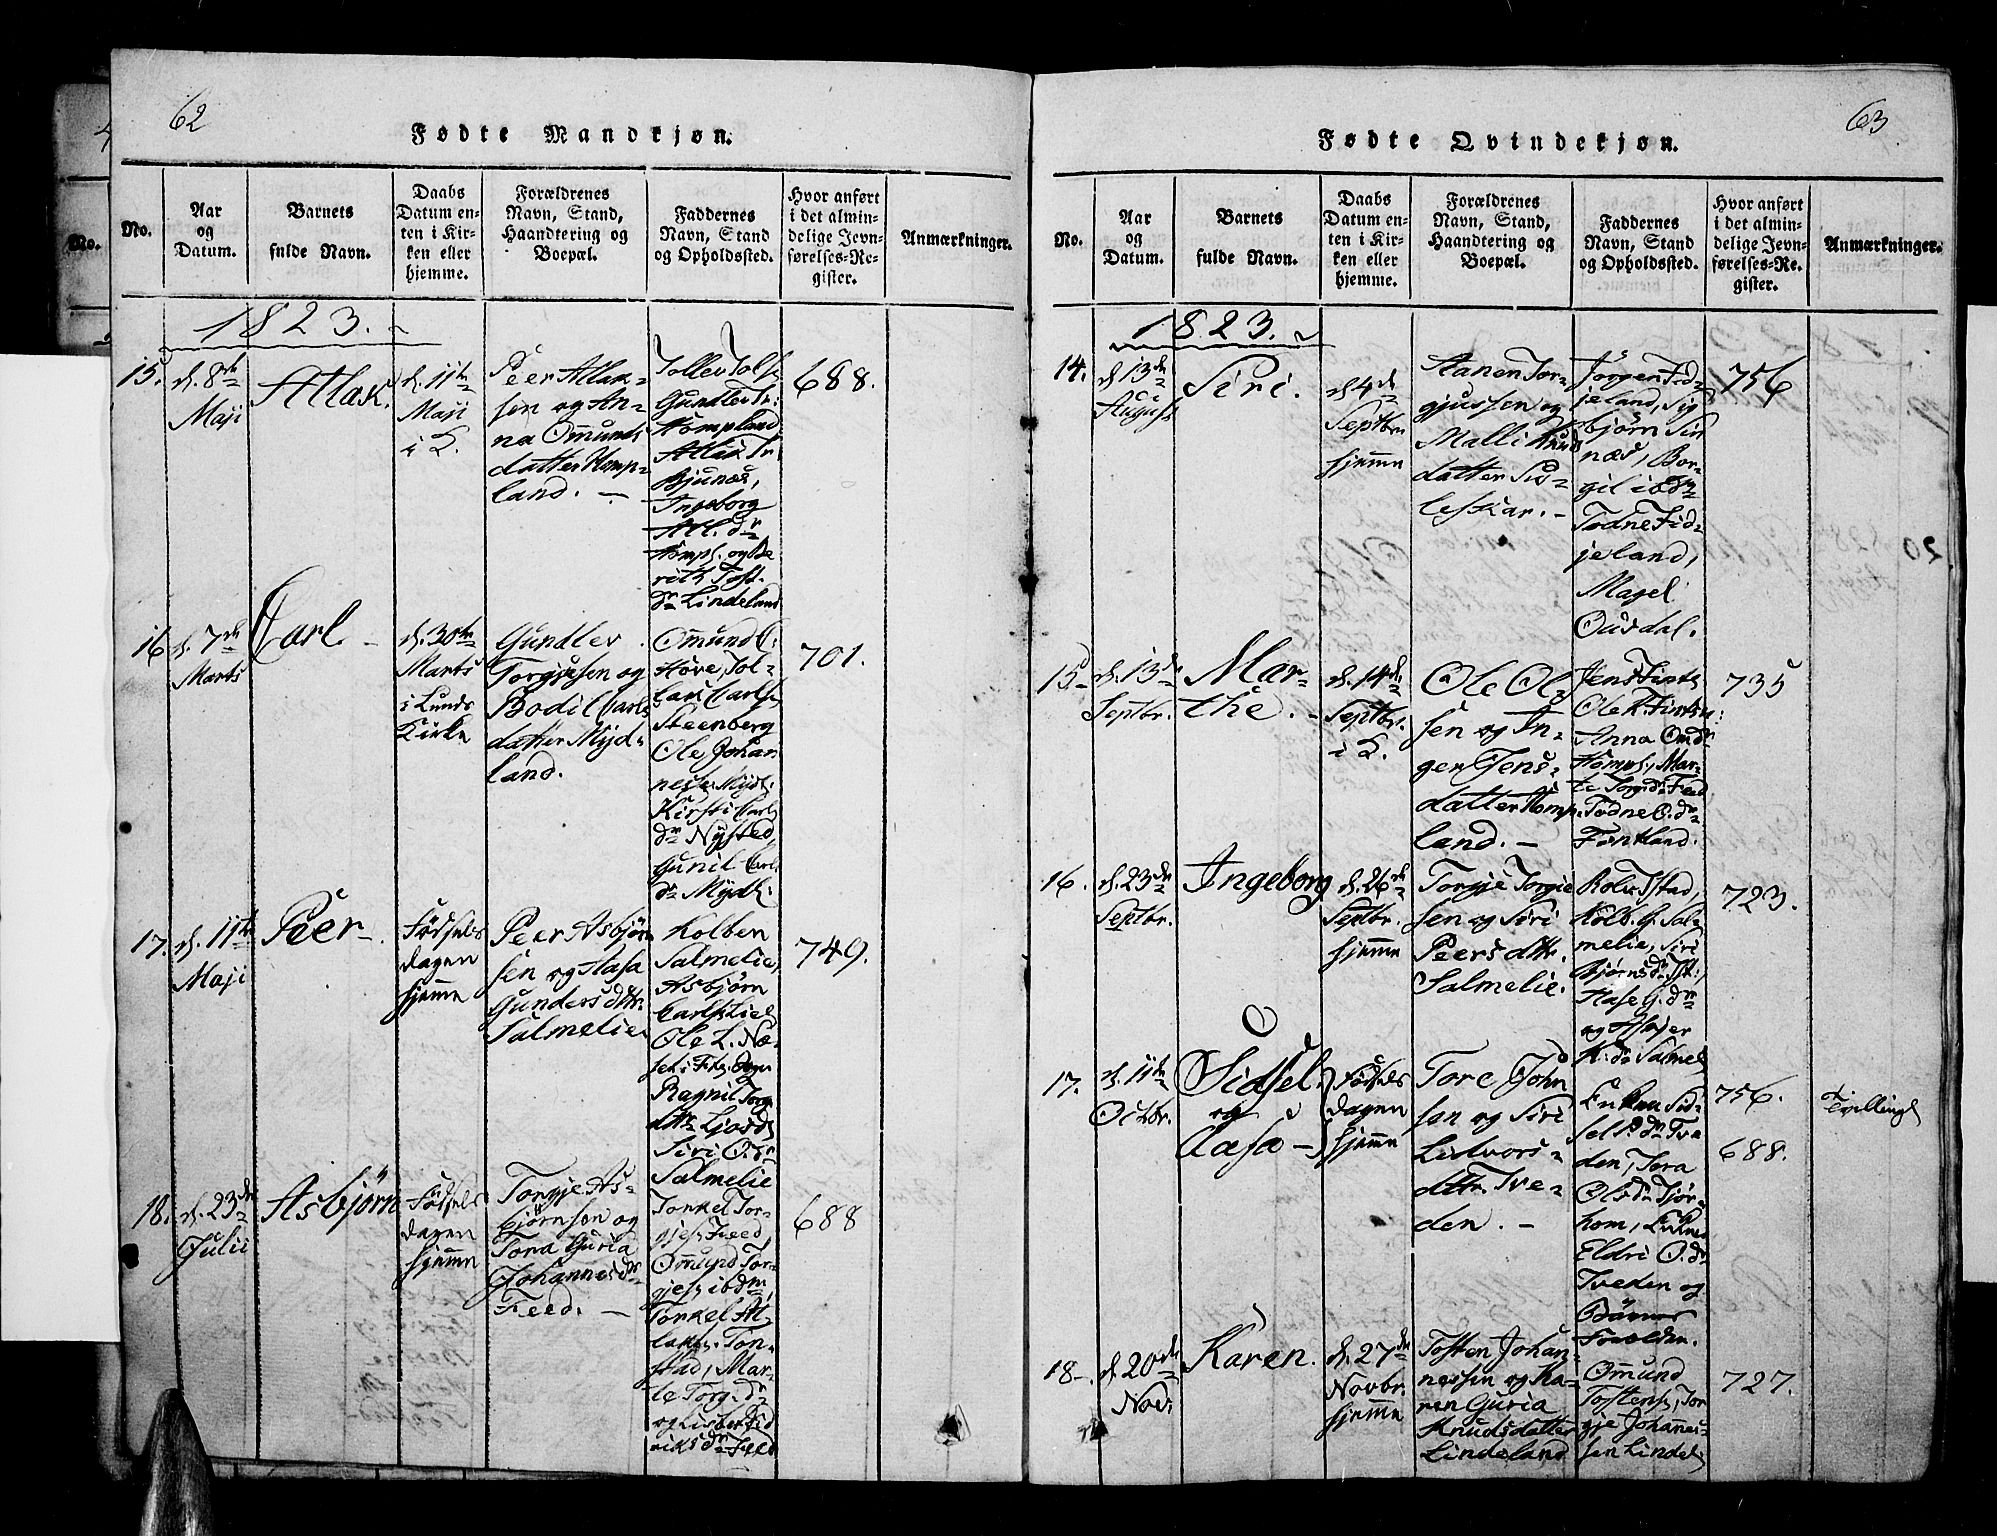 62
Fødte Mandkjøn.
No.
Aar
og
Datum.
Barnets
fulde Navn.
Daabs
Datum en-
ten i Kir-
ken eller
hjemme.
Forældrenes
Navn, Stand,
Haandtering og
Boepæl.
Faddernes
Navn, Stand
og Opholdssted.
Hvor anført
i det almin-
delige Jevn-
førelses-Re-
gister.
Anmærkninger.
1823.
15.
d. 8de
Maji
Atlak.
d. 11te
Maji
i K.
Peer Atlak-
sen og An-
na Omunds
datter Homp-
land. -
Tollev Tols
Gundlev Tr:
Hompland
Atlak Tr.
Bjunes,
Ingeborg
Atl. dr
Hompl. og Be
rith Tost.
dr Lindeland
688.
16
d. 7de
Marts
Carl -
d. 30te
Marts
i Lunds
Kirke
Gundlev
Torgjusen og
Bodil Carls
datter Myd-
land.
Omund C.
Hove, Tol-
Carl Carls.
Steenberg
Ole Johan
nesse Mydl.
Kirsti Carls
dr Nysted
Gunil Carl
dr Mydl.
701.
17.
d. 11te
Maji
Peer -
Fødsels
dagen
hjemme
Peer Asbjørn
sen og Aasa
Gundersdtr.
Salmelie
Kolben
Salmelie,
Asbjørn
Carls. Lie
Ole L. Næ-
Ragnil Torg
dtr Ljosd
Siri O. dr
Salmelie
749.
18.
d. 23de
Julii
Asbjørn
Fødsels
dagen
hjemme
Torgje As-
bjørnsen og
Tona Guria
Johannesdr
Feed. -
Tonkel Tor-
gjes. Feed,
Omund Tor-
gjes. ibdm,
Tonkel At-
laks. Ton-
stad, Mar-
te Torg. dr
og Lisbet Tid
riks dr Feed
688
63
Fødte Qvindekjøn.
No.
Aar
og
Datum.
Barnets
fulde Navn.
Daabs
Datum en-
ten i Kir-
ken eller
hjemme.
Forældrenes
Navn, Stand,
Haandtering og
Boepæl.
Faddernes
Navn, Stand
og Opholdssted.
Hvor anført
i det almin-
delige Jevn-
førelses-Re-
gister.
Anmærkninger.
1823.
14.
d 13de
August
Siri.
d 4de
Septbr.
hjemme
Hanen Tor-
gjussen og
Malli Knud
datter Sid-
leskar. -
Jørgen Fid-
jeland, Sig
bjørn Sin
næs, Bor-
gil ibdm
Todne Fid-
jeland,
Magel
Ousdal.
756
15-
d. 13de
Septbr.
Mar-
the. -
d. 14de
Septbr.
i K.
Ole Ol-
sen og In-
ger Jens-
datter Homp-
land. -
Jens Fints
Ole K. Fintsn:
Anna Omdr
Hompl., Mar-
te Torg. dr Feed
Todne O. dr
Fintland.
735
16.
d. 23de
Septbr.
Ingeborg
d. 26de
Septbr.
hjemme
Torgje Torgie
sen og Siri
Peersdtr.
Salmelie.
Rolv Tstad,
Kolb. G. Sal-
melie, Siri
Aase G. dr
K. dr Salmel
723.
17.
d. 11te
Octbr.
Sidsel
og
Aasa -
Fødsels
dagen
hjemme
Tore John
sen og Siri
Ledvors-
dttr. Tve-
den. -
Enken Sid-
sel P. dr Tve
den, Tora
Ols dr Tjør-
hom, Enken
Eldri O. dr
Tveden og
Forælden.
756.
688.
Tvillinge
18-
d 20de
Nov.
Karen.
d. 27de
Novbr.
hjemme
Tosten Johan-
nessen og Ka-
ren Guria
Knudsdatter
Lindeland
Omund
Tostens., Tor
gje Johannes-
sen Lindel.
727.